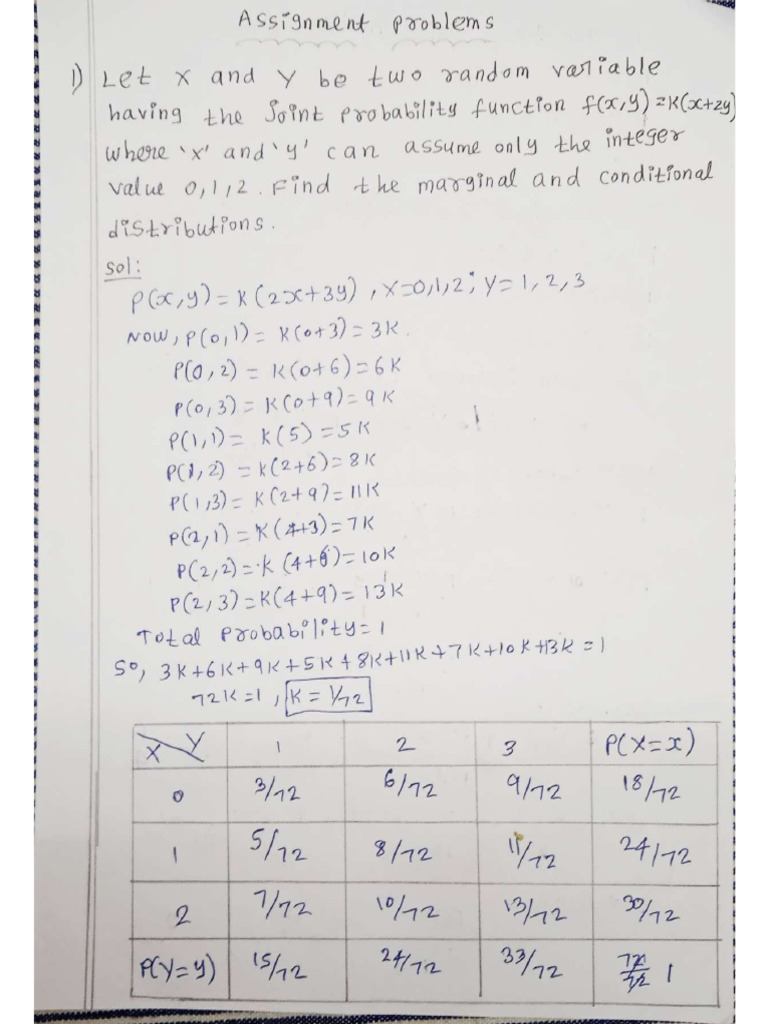 Assignment problems
1) Let x and y be two random variable
having the Joint probability function f(x,y)=K(x+2y)
where 'x' and 'y' can assume only the integer
value 0,1,2. Find the marginal and conditional
distributions.
Sol:
P(x,y)=K(2x+3y), x=0,1,2; y=1,2,3
Now, P(0,1)= K(0+3)=3K.
P(0,2) = K(0+6)=6K
P(0,3)= K(0+9)=9K
P(1,1)= K(5)=5K
P(1,2) = K(2+6)=8K
P(1,3)= K(2+9)=11K
P(2,1)=K(4+3)=7K
P(2,2)=K(4+6)=10K
P(2,3)=K(4+9)=13K
Total probability=1
So, 3K+6K+9K+5K+8K+11K+7K+10K+13K=1
72K=1, K=1/72
X Y 1 2 3 P(X=x)
0 3/72 6/72 9/72 18/72
1 5/72 8/72 11/72 24/72
2 7/72 10/72 13/72 30/72
P(Y=y) 15/72 24/72 33/72 72/72 1